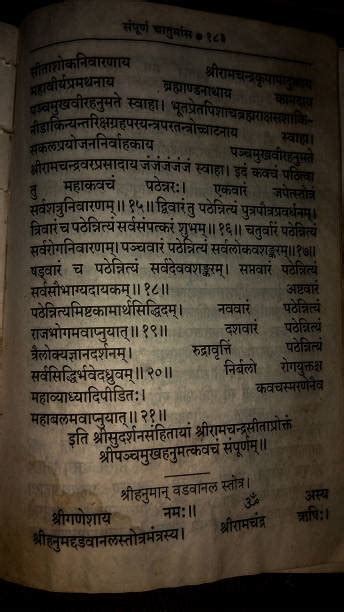 संपूर्ण चातुर्मास ● १८३
सीताशोकनिवारणाय श्रीरामचन्द्रकृपापादुकाय
महावीर्यप्रमथनाय ब्रह्माण्डनाथाय कामदाय
पञ्चमुखवीरहनुमते स्वाहा। भूतप्रेतपिशाचब्रह्मराक्षसशाकि-
नीडाकिन्यन्तरिक्षग्रहपरयन्त्रपरतन्त्रोच्चाटनाय स्वाहा।
सकलप्रयोजननिर्वाहकाय पञ्चमुखवीरहनुमते
श्रीरामचन्द्रवरप्रसादाय जंजंजंजंजं स्वाहा। इदं कवचं पठित्वा
तु महाकवचं पठेन्नरः। एकवारं जपेत्स्तोत्रं
सर्वशत्रुनिवारणम्॥ १५॥ द्विवारं तु पठेन्नित्यं पुत्रपौत्रप्रवर्धनम्।
त्रिवारं च पठेन्नित्यं सर्वसंपत्करं शुभम्॥ १६॥ चतुर्वारं पठेन्नित्यं
सर्वरोगनिवारणम्। पञ्चवारं पठेन्नित्यं सर्वलोकवशङ्करम्॥१७॥
षड्वारं च पठेन्नित्यं सर्वदेववशङ्करम्। सप्तवारं पठेन्नित्यं
सर्वसौभाग्यदायकम्॥ १८॥ अष्टवारं
पठेन्नित्यमिष्टकामार्थसिद्धिदम्। नववारं पठेन्नित्यं
राजभोगमवाप्नुयात्॥ १९॥ दशवारं पठेन्नित्यं
त्रैलोक्यज्ञानदर्शनम्। रुद्रावृत्तिं पठेन्नित्यं
सर्वसिद्धिर्भवेद्ध्रुवम्॥ २०॥ निर्बलो रोगयुक्तश्च
महाव्याध्यादिपीडितः। कवचस्मरणेनैव
महाबलमवाप्नुयात्॥ २१॥
इति श्रीसुदर्शनसंहितायां श्रीरामचन्द्रसीताप्रोक्तं
श्रीपञ्चमुखहनुमत्कवचं संपूर्णम्॥
श्रीहनुमान् वडवानल स्तोत्र।
श्रीगणेशाय नमः॥ ॐ अस्य
श्रीहनुमद्वडवानलस्तोत्रमंत्रस्य। श्रीरामचंद्र ऋषिः।